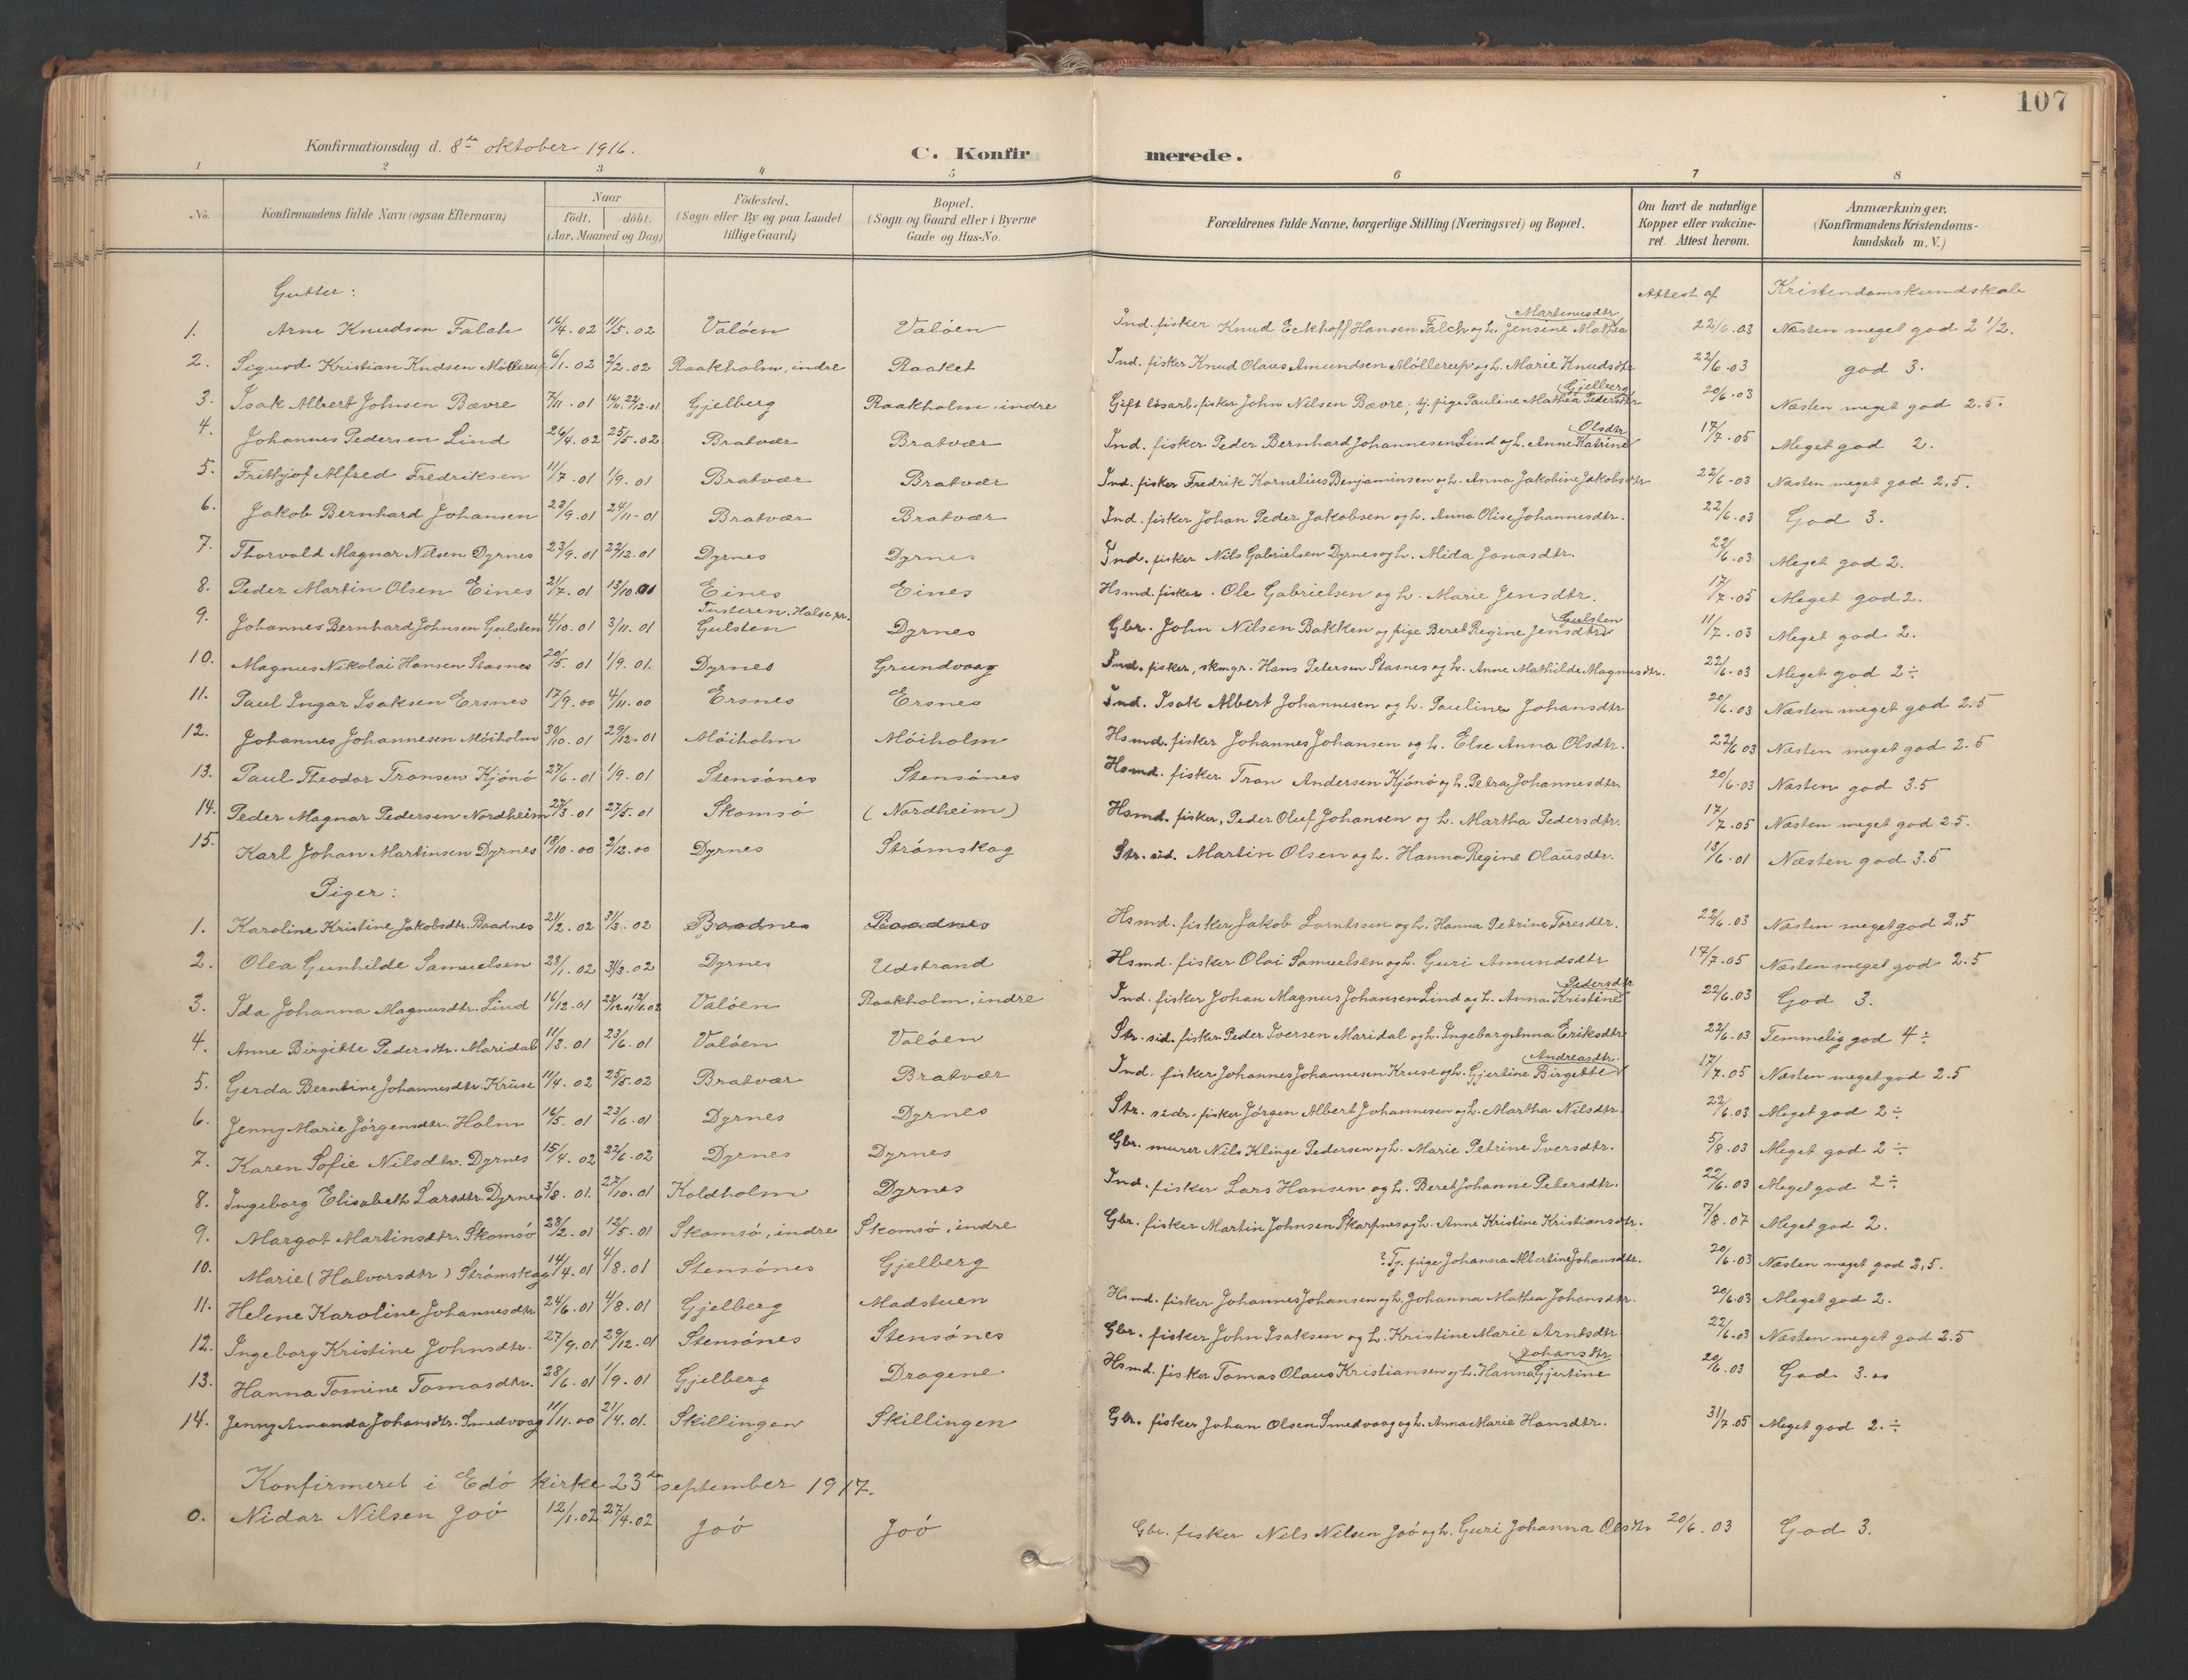 107
Konfirmationsdag d. 8de oktober 1916.
C. Konfirmerede.
1 2 3 4 5 6 7 8
No. Konfirmandens fulde Navn (ogsaa Efternavn) Naar födt. döbt. (Aar, Maaned og Dag) Födested. (Sogn eller By og paa Landet tillige Gaard) Bopæl. (Sogn og Gaard eller i Byerne Gade og Hus-No. Forældrenes fulde Navne, borgerlige Stilling (Næringsvei) og Bopæl. Om havt de naturlige Kopper eller vakcineret. Attest herom. Anmærkninger. (Konfirmandens Kristendomskundskab m. V.)
Gutter: Attest af Kristendomskundskab
1. Arne Knudsen Falch 16/4.02 11/5.02 Valöen Valöen Ind. fisker Knud Eckhoff Hansen Falch og h. Jensine Mathea Martinusdtr 22/6.03 Næsten meget god 2 1/2.
2. Sigurd Kristian Knudsen Möllerup 6/1.02 2/2.02 Raakholm, indre Raaket Ind. fisker Knud Olaus Amundsen Möllerup og h. Marie Knudsdtr 22/6.03 god 3.
3. Isak Albert Johnsen Bævre 7/11.01 22/12.01 Gjelberg Raakholm, indre Gift lösarb. fisker John Nilsen Bævre, tj. pige Pauline Mathea Pedersdtr Gjelberg 20/6.03 Næsten meget god 2.5.
4. Johannes Pedersen Lind 26/4.02 25/5.02 Bratvær Bratvær Ind. fisker Peder Bernhard Johannesen Lind og h. Anne Katrine Olsdtr 17/7.05 Meget god 2.
5. Frithjof Alfred Fredriksen 11/7.01 1/9.01 Bratvær Bratvær Ind. fisker Fredrik Kornelius Benjaminsen og h. Anna Jakobine Jakobsdtr 22/6.03 Næsten meget god 2,5.
6. Jakob Bernhard Johansen 23/9.01 24/11.01 Bratvær Bratvær Ind. fisker Johan Peder Jakobsen og h. Anna Olise Johannesdtr. 22/6.03 God 3.
7. Thorvald Magnar Nilsen Dyrnes 23/9.01 22/12.01 Dyrnes Dyrnes Ind. fisker Nils Gabrielsen Dyrnes og h. Alida Jonasdtr. 22/6.03 Meget god 2.
8. Peder Martin Olsen Eines 21/7.01 13/10.01 Eines Eines Hsmd. fisker. Ole Gabrielsen og h. Marie Jensdtr. 17/7.05 Meget god 2.
9. Johannes Bernhard Johnsen Gulsten 4/10.01 3/11.01 Tusteren, Halse pr. Gulsten Dyrnes Gbr. John Nilsen Bakken og pige Beret Regine Jensdtr Gulsten 11/7.03 Meget god 2.
10. Magnus Nikolai Hansen Stasnes 20/5.01 1/9.01. Dyrnes Grundvaag Ind. fisker, skmgr. Hans Petersen Stasnes og h. Anne Mathilde Magnusdtr. 22/6.03 Meget god 2÷
11. Paul Ingar Isaksen Ersnes 17/9.00 4/11.00 Ersnes Ersnes Ind. Isak Albert Johannesen og h. Pauline Johansdtr 20/6.03 Næsten meget god 2.5
12. Johannes Johannesen Möiholm 30/10.01 29/12.01 Möiholm Möiholm Hsmd. fisker Johannes Johansen og h. Else Anna Olsdtr. 22/6.03 Næsten meget god 2.5
13. Paul Theodor Tronsen Kjönö 27/6.01 1/9.01 Stensönes Stensönes Hsmd. fisker Tron Andersen Kjönö og h. Petra Johannesdtr. 20/6.03 Næsten god 3.5
14. Peder Magnar Pedersen Nordheim 27/3.01 27/5.01 Skomsö (Nordheim) Hsmd. fisker, Peder Oluf Johansen og h. Martha Pedersdtr. 17/7.05 Næsten meget god 2.5.
15. Karl Johan Martinsen Dyrnes 18/10.00 2/12.00 Dyrnes Strömskag Str. sid. Martin Olsen og h. Hanna Regine Olausdtr. 13/6.01 Næsten god 3.5
Piger:
1. Karoline Kristine Jakobsdtr. Baadnes 21/2.02 31/3.02 Baadnes Baadnes Hsmd. fisker Jakob Larntssen og h. Hanna Petrine Toresdtr. 22/6.03 Næsten meget god 2,5
2. Olea Gunhilde Samuelsen 28/1.02 31/3.02 Dyrnes Udstrand Hsmd. fisker Olai Samuelsen og h. Guri Amundsdtr 17/7.05 Næsten meget god 2.5
3. Ida Johanna Magnusdtr. Lind 16/12.01 12/1.02 Valöen Raakholm, indre Ind. fisker Johan Magnus Johansen Lind og h. Anna Kristine Pedersdtr 22/6.03 God 3.
4. Anne Birgitte Pedersdtr. Maridal 11/3.01 23/6.01 Valöen Valöen Str. sid. fisker Peder Iversen Maridal og h. Ingeborg Anna Eriksdtr 22/6.03 Temmelig god 4÷
5. Gerda Berntine Johannesdtr. Kruse 11/4.02 25/5.02 Bratvær Bratvær Ind. fisker Johannes Johannesen Kruse og h. Gjertine Birgitte Andreasdtr. 17/7.05 Næsten meget god 2.5
6. Jenny Marie Jörgensdtr. Holm 16/5.01 23/6.01 Dyrnes Dyrnes Str. sidr. fisker Jörgen Albert Johannesen og h. Martha Nilsdtr. 22/6.03 Meget god 2÷
7. Karen Sofie Nilsdtr. Dyrnes 15/4.02 22/6.02 Dyrnes Dyrnes Gbr. murer Nils Klinge Pedersen og h. Marie Petrine Iversdtr. 5/8.03 Meget god 2÷
8. Ingeborg Elisabeth Larsdtr. Dyrnes 3/8.01. 27/10.01 Koldholm Dyrnes Ind. fisker Lars Hansen og h. Beret Johanne Petersdtr. 22/6.03 Meget god 2÷
9. Margot Martinsdtr. Skomsö 28/2.01 12/5.01 Skomsö, indre Skomsö, indre Gbr. fisker Martin Johnsen Skarpnes og h. Anne Kristine Kristiansdtr. 7/8.07 Meget god 2.
10. Marie (Halvorsdtr) Strömskag 14/4.01 4/8.01 Stensönes Gjelberg ? Tj. pige Johanna Albertine Johansdtr. 20/6.03 Næsten meget god 2,5.
11. Helene Karoline Johannesdtr 24/6.01 4/8.01 Gjelberg Madstuen Hsmd. fisker Johannes Johansen og h. Johanna Mathea Johansdtr. 20/6.03 Meget god 2.
12. Ingeborg Kristine Johnsdtr. 27/9.01 29/12.01 Stensönes Stensönes Gbr. fisker John Isaksen og h. Kristine Marie Arntsdtr 22/6.03 Næsten meget god 2.5
13. Hanna Tomine Tomasdtr. 28/6.01 1/9.01 Gjelberg Dragene Hsmd. fisker Tomas Olaus Kristiansen og h. Hanna Gjertine Johansdtr 20/6.03 God 3.
14. Jenny Amanda Johansdtr. Smedvaag 11/11.00 21/4.01. Skillingen Skillingen Gbr. fisker Johan Olsen Smedvaag og h. Anna Marie Hansdtr. 31/7.05 Meget god 2.÷
Konfirmeret i Edö kirke 23de september 1917.
0. Nidar Nilsen Joö 12/1.02 27/4.02 Joö Joö Gbr. fisker Nels Nilsen Joö og h. Guri Johanna Olsdtr 20/6.03 God 3.